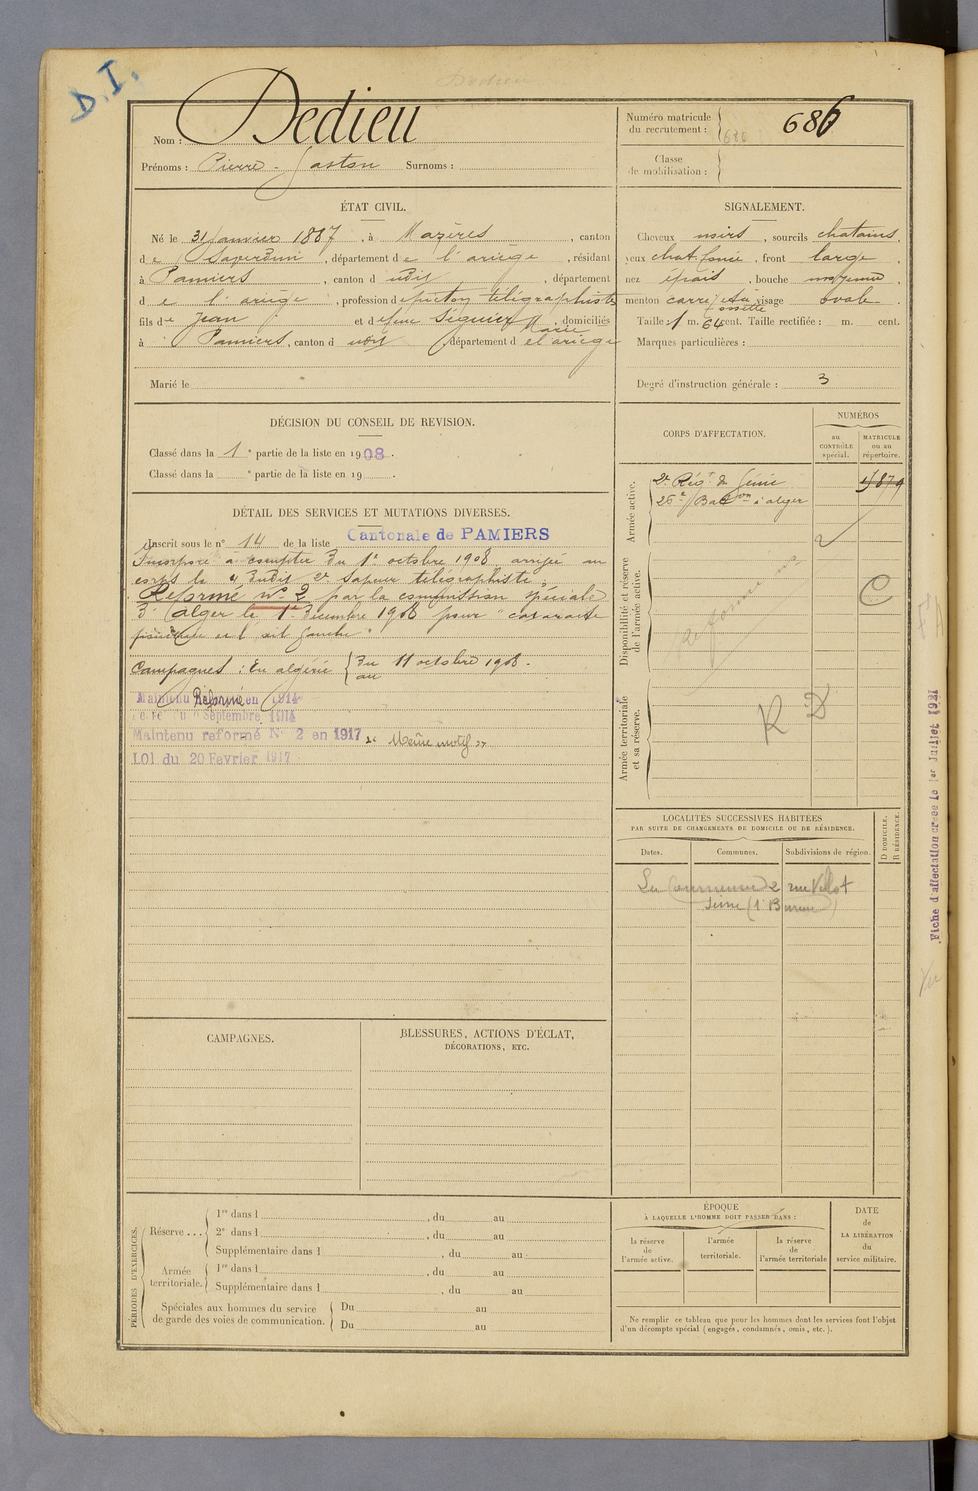 D.I.
Nom : Dedieu
Prénoms : Pierre-Gaston Surnoms :
Numéro matricule
du recrutement : 686
Classe
de mobilisation :
ÉTAT CIVIL.
Né le 31 Janvier 1887, à Mazères, canton
de Saverdun, département de l'ariège, résidant
à Pamiers, canton d udit, département
de l'ariège, profession d télégraphiste
fils de Jean et de Séguier Marie, domiciliés
à Pamiers, canton d udit, département de l'ariège
Marié le
SIGNALEMENT.
Cheveux noirs, sourcils chatains,
yeux chat. foncé, front large,
nez épais, bouche moyenne,
menton carré fossette visage ovale
Taille : 1 m. 64 cent. Taille rectifiée : m. cent.
Marques particulières :
Degré d'instruction générale : 3
DÉCISION DU CONSEIL DE REVISION.
Classé dans la 1e partie de la liste en 1908.
Classé dans la e partie de la liste en 19 .
DÉTAIL DES SERVICES ET MUTATIONS DIVERSES.
Inscrit sous le n° 14 de la liste Cantonale de PAMIERS
Incorporé à compter du 1er octobre 1908 arrivé au
corps le dudit 2e sapeur télégraphiste.
Réformé n° 2 par la commission spéciale
d'alger le 1er Décembre 1908 pour "cataracte
œil gauche"
Campagnes : En algérie { du 11 octobre 1908.
au
Maintenu Réformé en 1914
Septembre 1914
Maintenu reformé N° 2 en 1917 Même motif
LOI du 20 Fevrier 1917
CORPS D'AFFECTATION.
NUMÉROS
au
CONTRÔLE
spécial.
MATRICULE
ou au
répertoire.
Armée active.
2e Régt du Génie
26e Baton à alger
Disponibilité et réserve
de l'armée active.
Réformé n° 2
C
Armée territoriale
et sa réserve.
R D
LOCALITÉS SUCCESSIVES HABITÉES
PAR SUITE DE CHANGEMENTS DE DOMICILE OU DE RÉSIDENCE.
Dates.
Communes.
Subdivisions de région.
D DOMICILE.
R RÉSIDENCE.
La Courneuve 2 rue
Seine (1 Bureau)
Fiche d'affectation créée le 1er Juillet 1921
CAMPAGNES.
BLESSURES, ACTIONS D'ÉCLAT,
DÉCORATIONS, ETC.
PÉRIODES D'EXERCICES.
Réserve ...
1re dans l , du au
2e dans l , du au
Supplémentaire dans l , du au
Armée
territoriale.
1re dans l , du au
Supplémentaire dans l , du au
Spéciales aux hommes du service
de garde des voies de communication.
Du au
Du au
ÉPOQUE
À LAQUELLE L'HOMME DOIT PASSER DANS :
la réserve
de
l'armée active.
l'armée
territoriale.
la réserve
de
l'armée territoriale
DATE
de
LA LIBÉRATION
du
service militaire.
Ne remplir ce tableau que pour les hommes dont les services font l'objet
d'un décompte spécial (engagés, condamnés, omis, etc.).